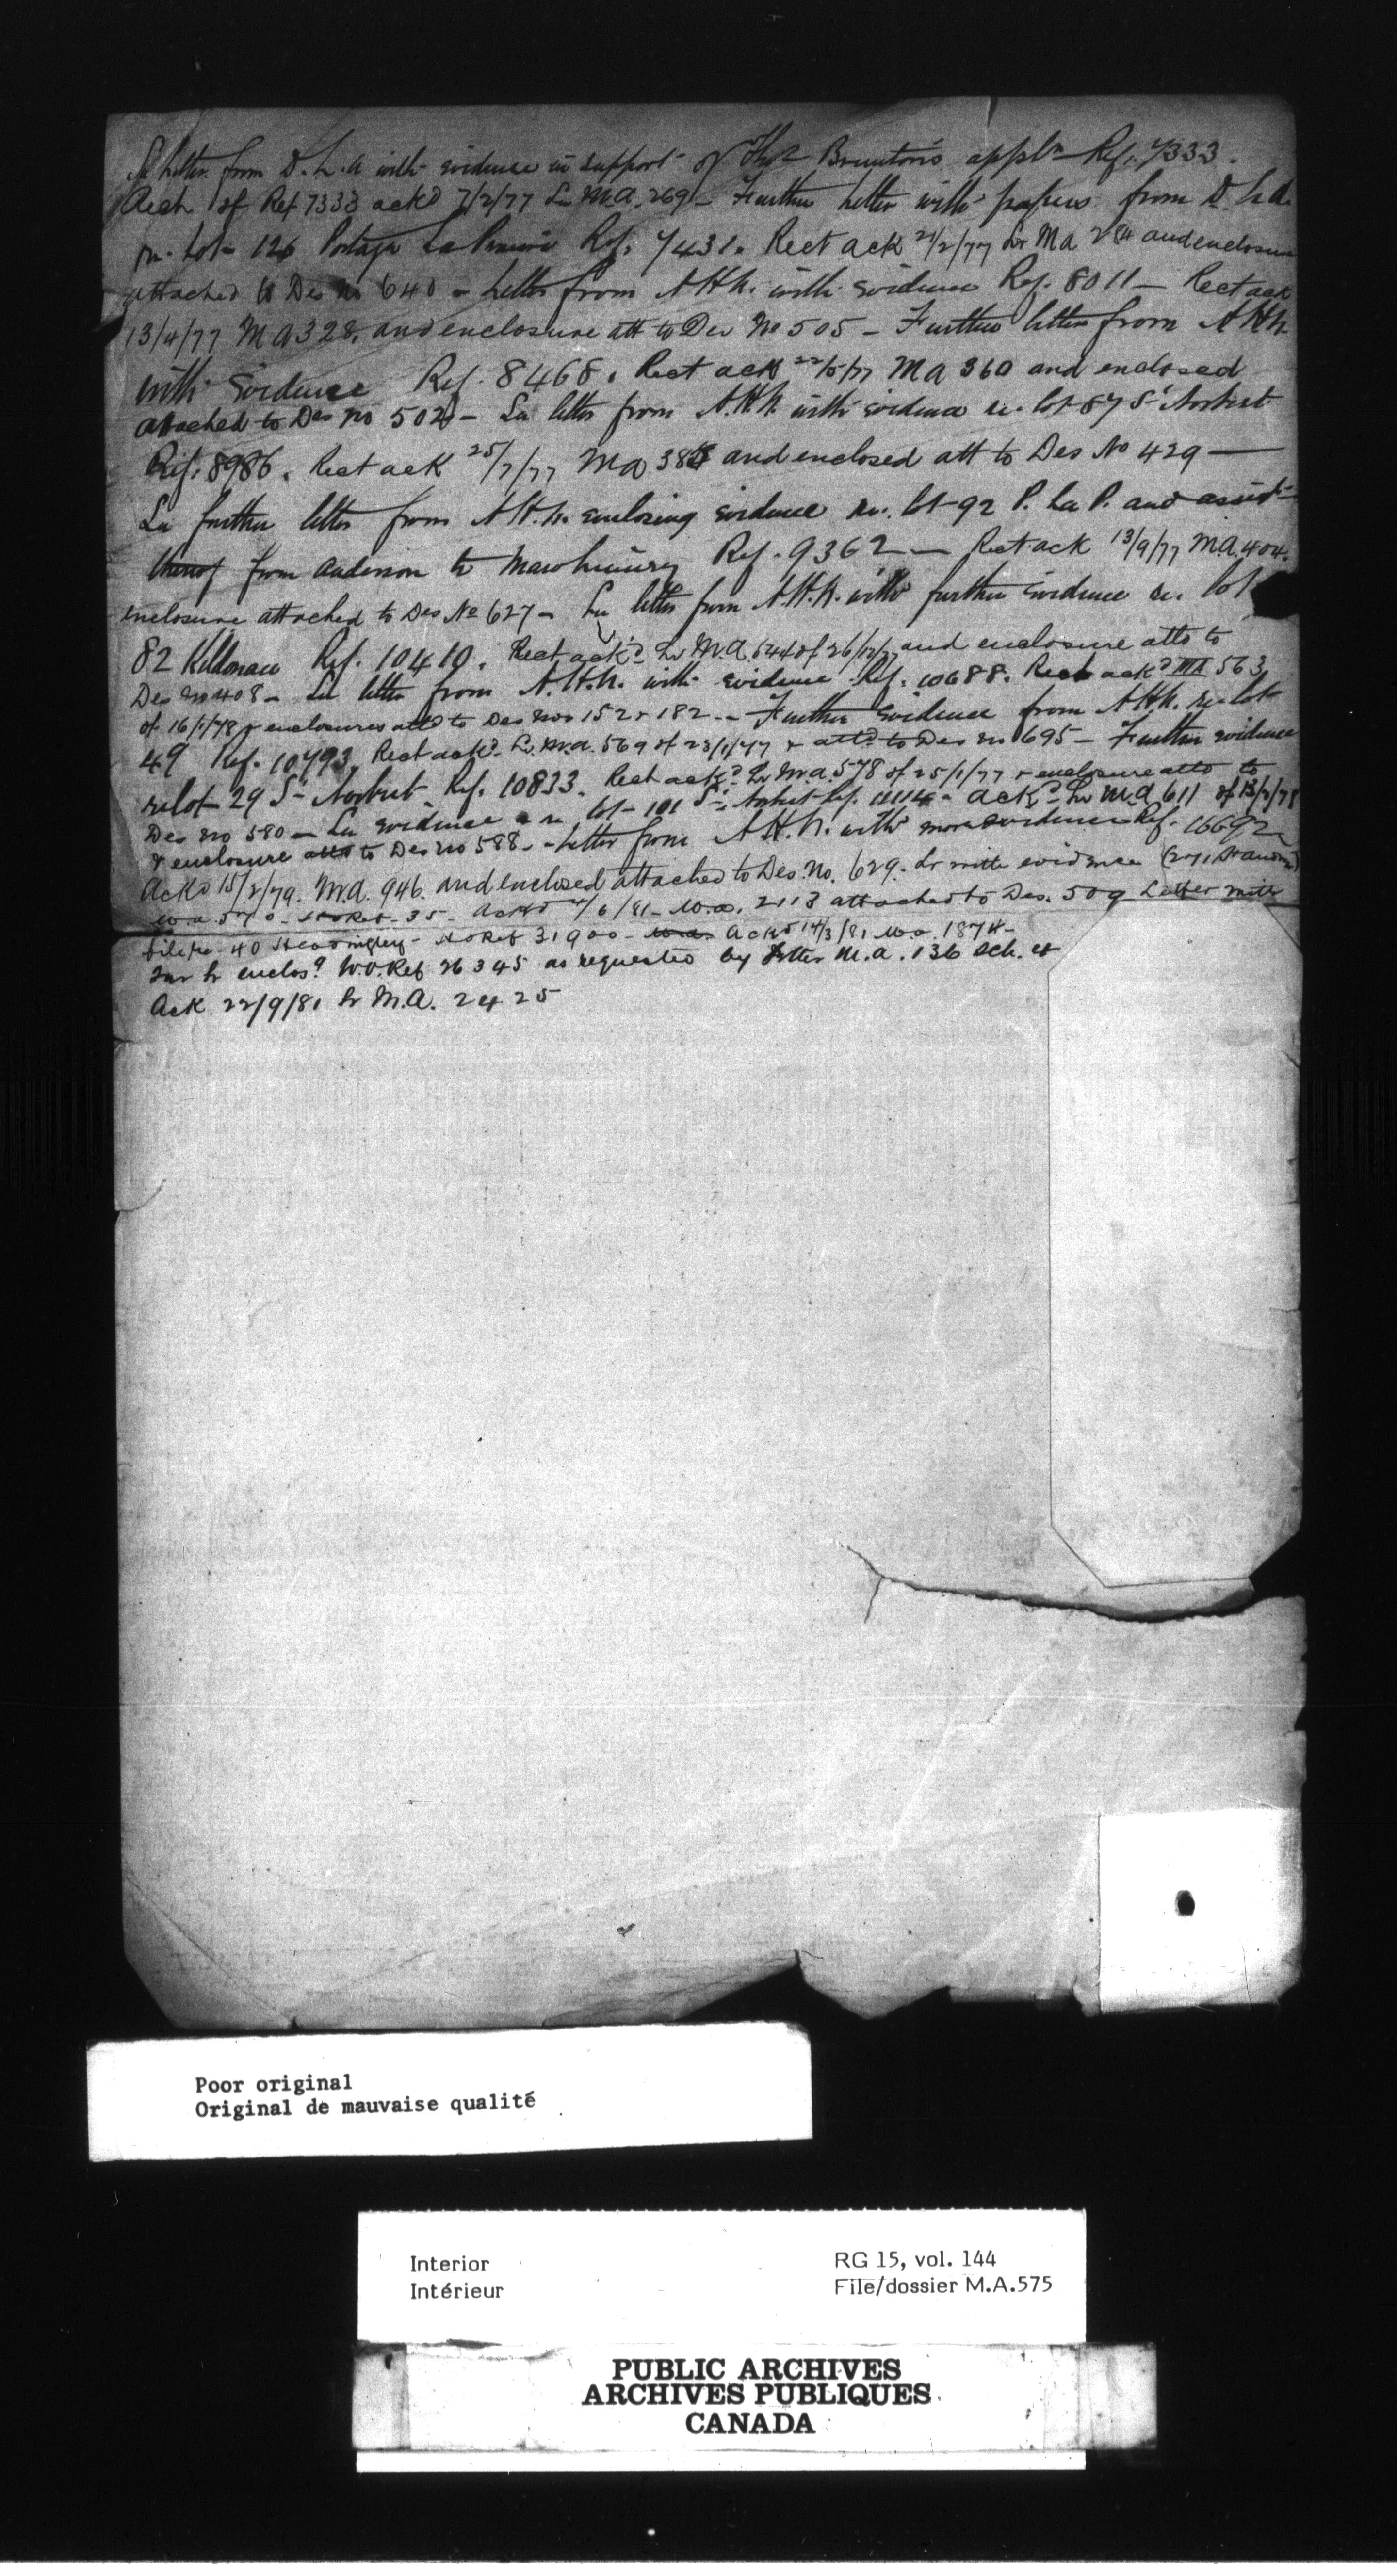 letter from D. L. A with evidence in support of Thos Brunton's appln Ref. 7333.
Rect of Ref 7333 ackd 7/2/77 Lr M.A. 269 - Further letter with papers from D. L. A.
re. lot 126 Portage La Prairie Ref. 7431. Rect ack 21/2/77 Lr M A and enclosure
attached to Des No 640 - Letter from A H W. with evidence Ref. 8011 - Rect ack
13/4/77 M A 328. and enclosure att to Des No 505 - Further letter from A H W
with Evidence Ref. 8468. Rect ack 22/5/77 M A 360 and enclosed
attached to Des No 502 - letter from A. H. W. with evidence re. lot 87 St Norbert
Ref. 8986. Rect ack 25/7/77 M A and enclosed att to Des No 429 -
further letter from A H. W. enclosing evidence re. lot 92 P. La P. and assist
thereof from Anderson to Ref. 9362 - Rect ack 13/9/77 M.A. 404.
enclosure attached to Des No 627 - letter from A. H. W. with further Evidence re. lot
82 Kildonan Ref. 10410. Rect ackd Lr M.A. 544 of 26/12/77 and enclosure attd to
Des No 408 - letter from A. H. W. with evidence Ref. 10688. Rect ackd MA 563
of 16/1/78 & enclosures attd to Des Nos 152 & 182 - Further Evidence from A H W. re lot
49 Ref. 10793. Rect ackd Lr M.A. 569 of 23/1/77 & attd to Des no 695 - Further evidence
re lot 29 St Norbert Ref. 10833. Rect ackd Lr M.A. 578 of 25/1/77 & enclosure attd to
Des no 580 - evidence re lot 101 St Norbert Ref. 11114 - ackd Lr M.A 611 of 13/2/78
& enclosure attd to Des no 588. - letter from A. H. W. with more evidence Ref. 16692
Ackd 15/2/79. M.A. 946. and enclosed attached to Des. No. 629. Lr with evidence
M.A. 570 - No Ref - 35 - Ackd 4/6/81 - M.A. 2113 attached to Des. 509 Letter with
file re 40 Headingley - No Ref 31900 - Ackd 14/3/81 M.A. 1874 -
Lr enclosg W.O. Ref 26345 as requested by letter M.A. 136
Ack 22/9/81 Lr M.A. 2425
Poor original
Original de mauvaise qualité
Interior
Intérieur
RG 15, vol. 144
File/dossier M.A.575
PUBLIC ARCHIVES
ARCHIVES PUBLIQUES
CANADA